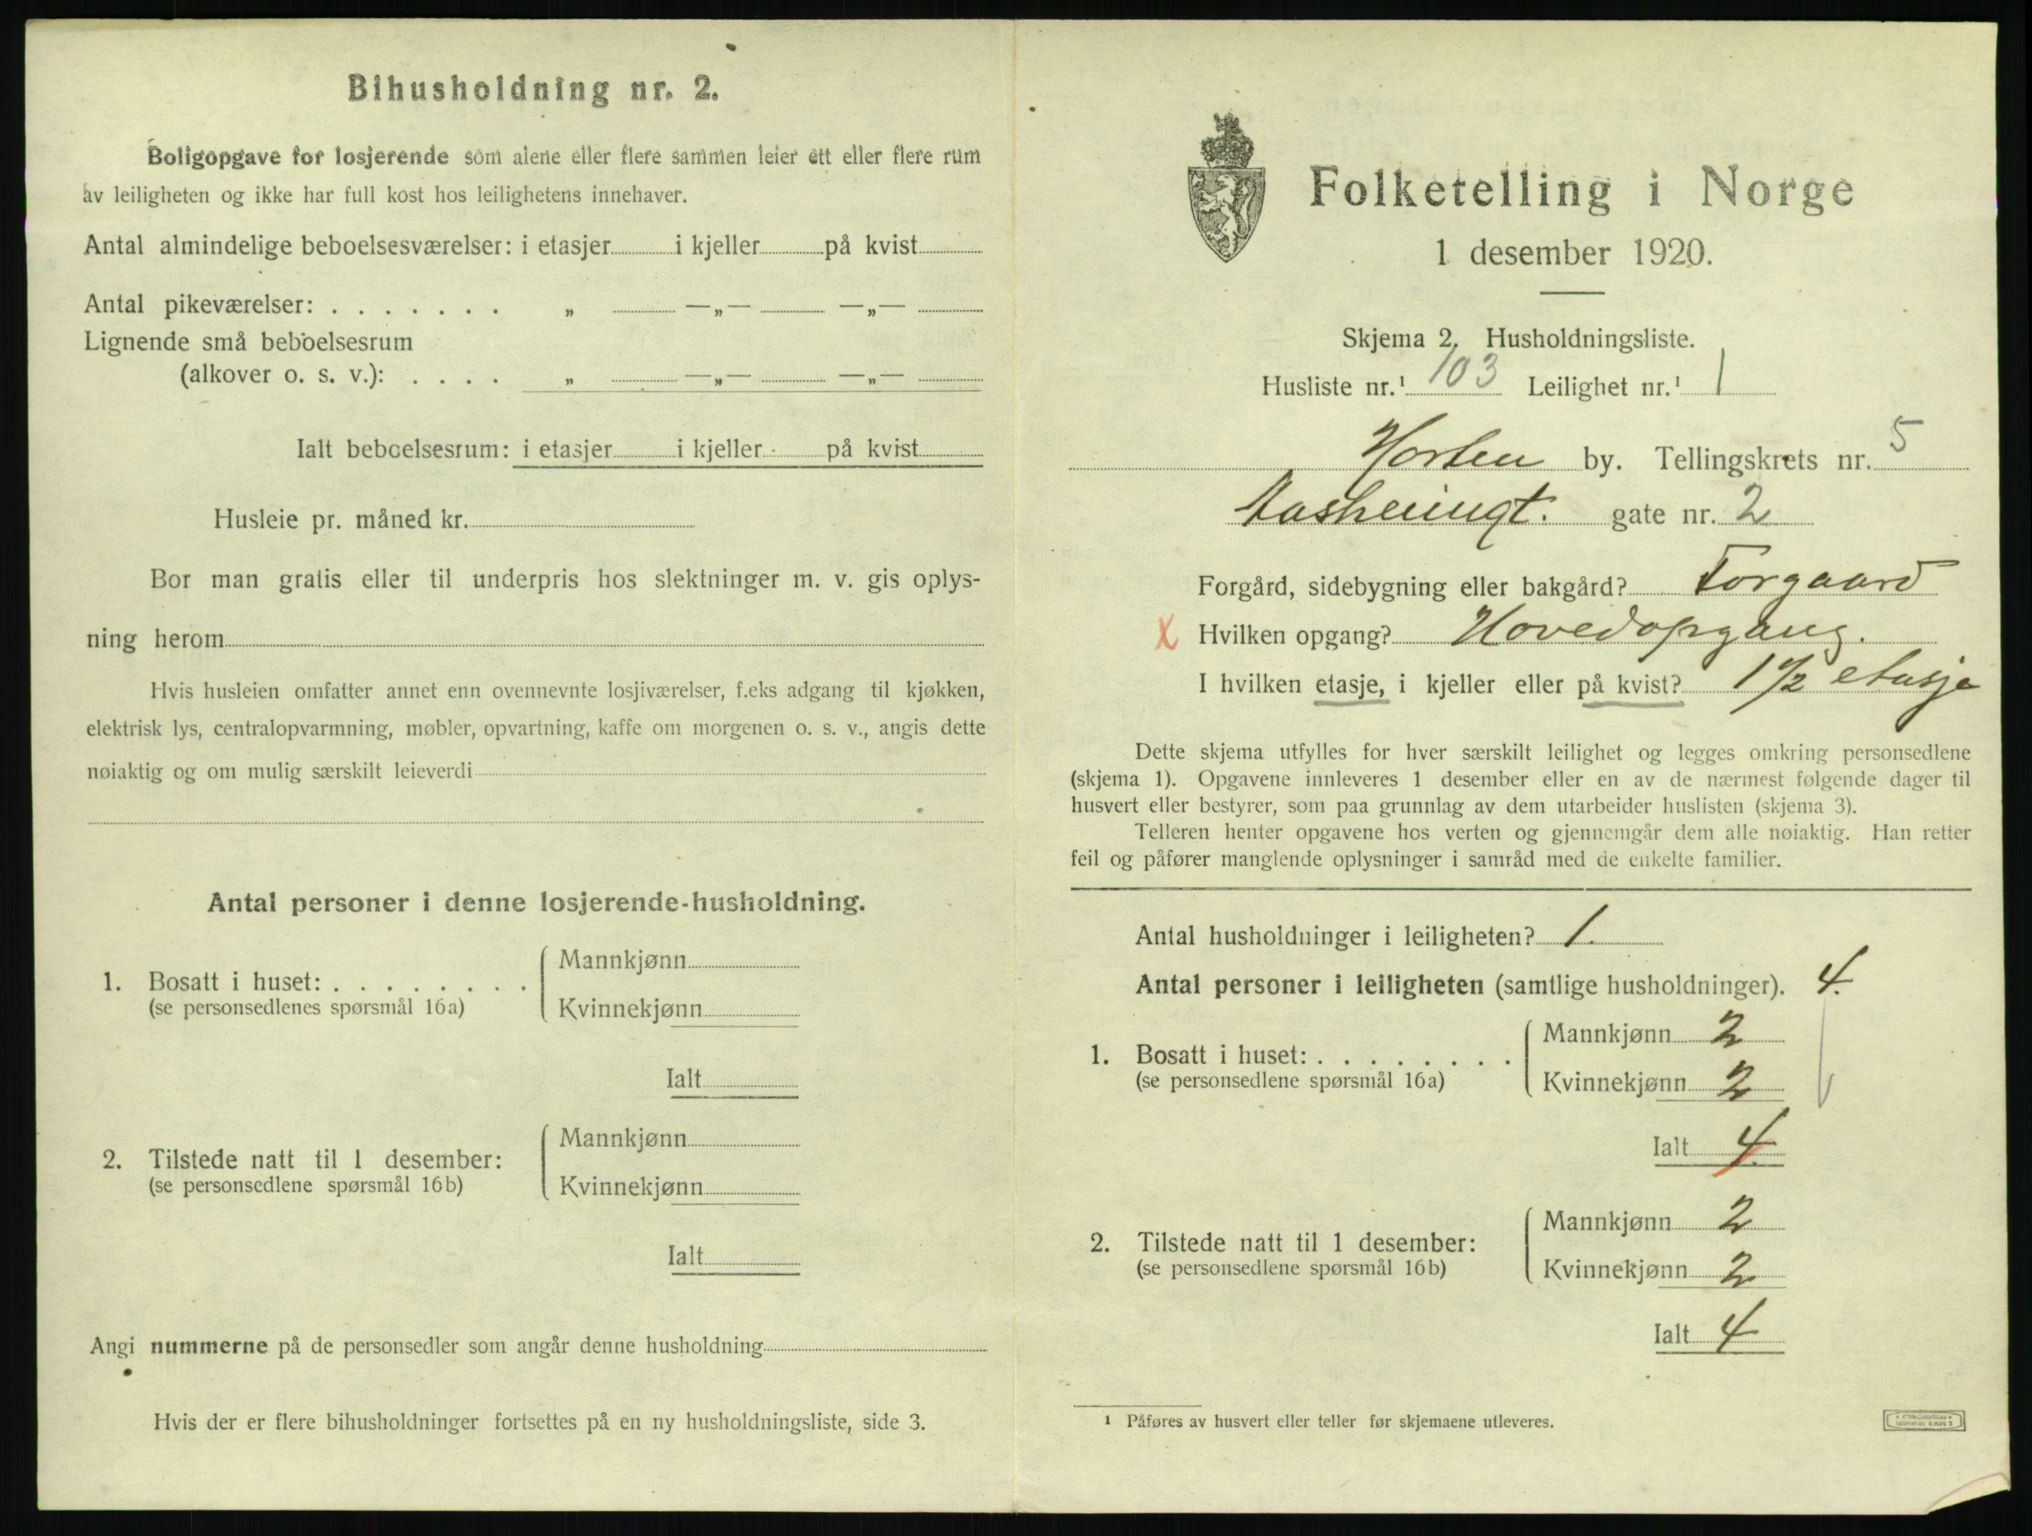 Bihusholdning nr. 2.
Boligopgave for losjerende som alene eller flere sammen leier ett eller flere rum
av leiligheten og ikke har full kost hos leilighetens innehaver.
Antal almindelige beboelsesværelser: i etasjer i kjeller på kvist
Antal pikeværelser: . . . . . . . „ —„— —„—
Lignende små beboelsesrum
(alkover o. s. v.): . . . . „ —„— —„—
Ialt beboelsesrum: i etasjer i kjeller på kvist
Husleie pr. måned kr.
Bor man gratis eller til underpris hos slektninger m. v. gis oplys-
ning herom
Hvis husleien omfatter annet enn ovennevnte losjiværelser, f.eks adgang til kjøkken,
elektrisk lys, centralopvarmning, møbler, opvartning, kaffe om morgenen o. s. v., angis dette
nøiaktig og om mulig særskilt leieverdi
Antal personer i denne losjerende-husholdning.
1. Bosatt i huset: . . . . . . . .
(se personsedlenes spørsmål 16a)
Mannkjønn
Kvinnekjønn
Ialt
2. Tilstede natt til 1 desember:
(se personsedlene spørsmål 16b)
Mannkjønn
Kvinnekjønn
Ialt
Angi nummerne på de personsedler som angår denne husholdning
Hvis der er flere bihusholdninger fortsettes på en ny husholdningsliste, side 3.
Folketelling i Norge
1 desember 1920.
Skjema 2. Husholdningsliste.
Husliste nr.¹ 103 Leilighet nr.¹ 1
Horten by. Tellingskrets nr. 5
gate nr. 2
Forgård, sidebygning eller bakgård? Forgaard
X Hvilken opgang? Hovedopgang.
I hvilken etasje, i kjeller eller på kvist? 1 1/2 etasje
Dette skjema utfylles for hver særskilt leilighet og legges omkring personsedlene
(skjema 1). Opgavene innleveres 1 desember eller en av de nærmest følgende dager til
husvert eller bestyrer, som paa grunnlag av dem utarbeider huslisten (skjema 3).
Telleren henter opgavene hos verten og gjennemgår dem alle nøiaktig. Han retter
feil og påfører manglende oplysninger i samråd med de enkelte familier.
Antal husholdninger i leiligheten? 1.
Antal personer i leiligheten (samtlige husholdninger). 4.
1. Bosatt i huset: . . . . . . . .
(se personsedlene spørsmål 16a)
Mannkjønn 2
Kvinnekjønn 2
Ialt 4.
2. Tilstede natt til 1 desember:
(se personsedlene spørsmål 16b)
Mannkjønn 2
Kvinnekjønn 2
Ialt 4
¹ Påføres av husvert eller teller før skjemaene utleveres.